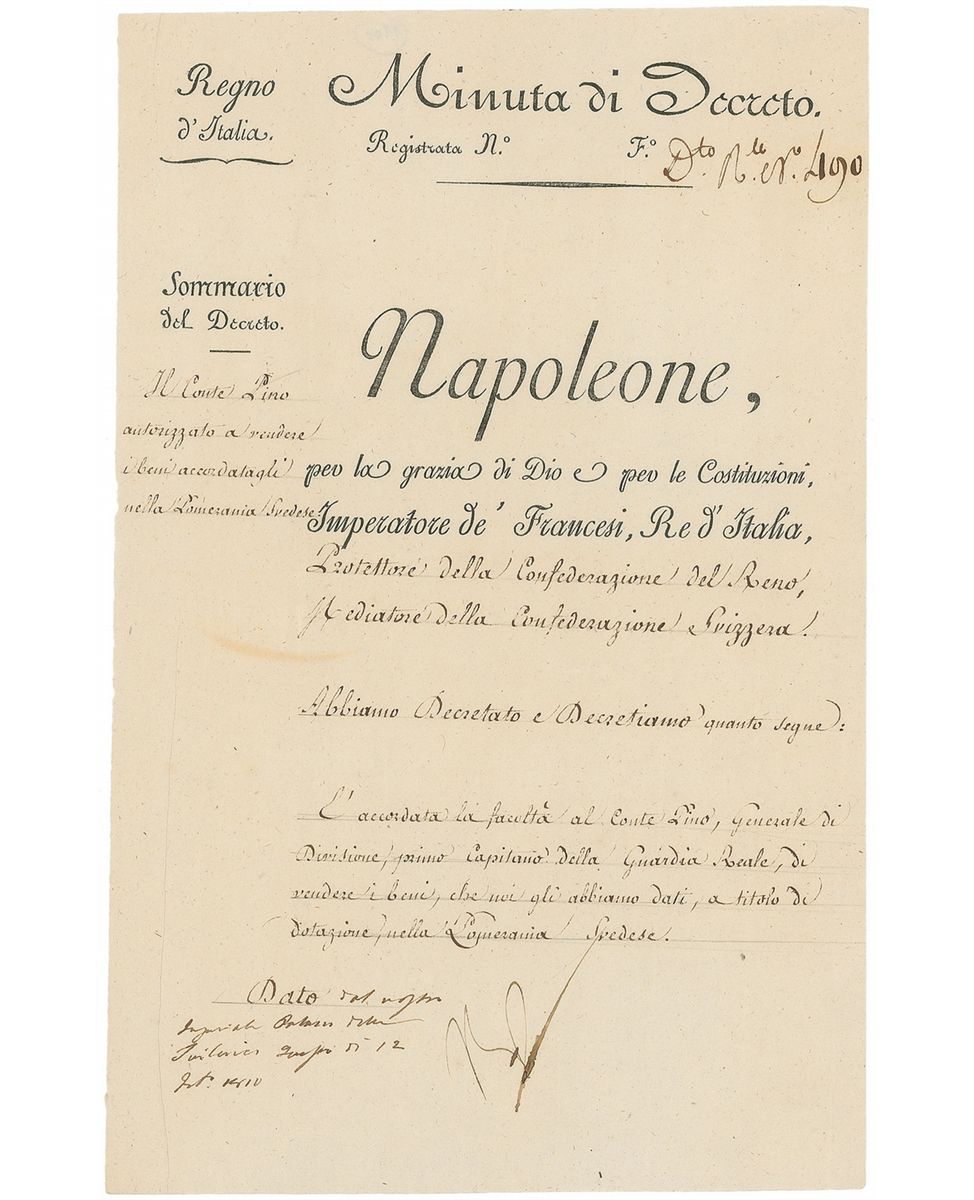 Regno
d'Italia.
Minuta di Decreto.
Registrata N.º F.º Dto. R.le N.º 490
Sommario
del Decreto.
Il Conte Pino
autorizzato a vendere
i beni accordatagli
nella Pomerania Svedese.
Napoleone,
per la grazia di Dio e per le Costituzioni,
Imperatore de' Francesi, Re d'Italia,
Protettore della Confederazione del Reno,
Mediatore della Confederazione Svizzera.
Abbiamo Decretato e Decretiamo quanto segue:
E' accordata la facoltà al Conte Pino, Generale di
Divisione, primo Capitano della Guardia Reale, di
vendere i beni, che noi gli abbiamo dati, a titolo di
dotazione, nella Pomerania Svedese.
Dato dal nostro
Imperiale Palazzo delle
Tuileries di 12
1810